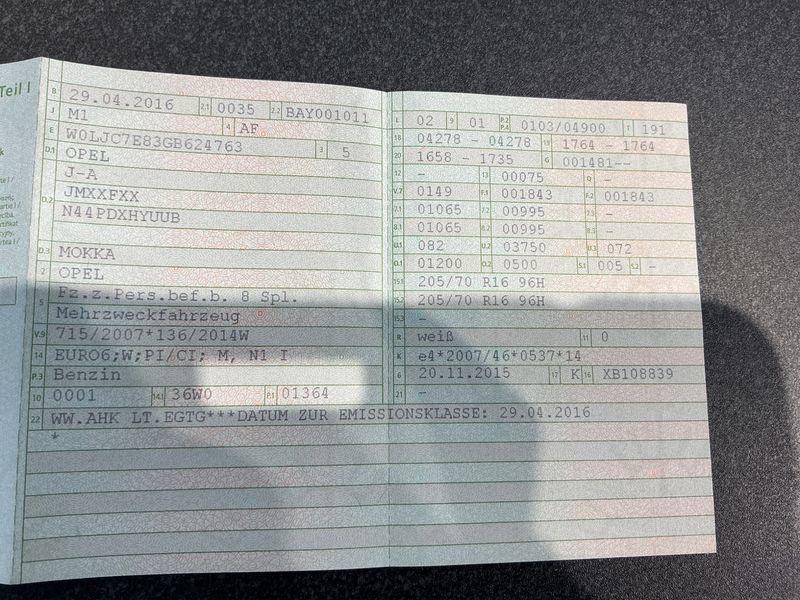 Teil I
B 29.04.2016 2.1 0035 2.2 BAY001011
J M1 4 AF
E W0LJC7E83GB624763 3 5
D.1 OPEL
J-A
D.2 JMXXFXX
N44PDXHYUUB
D.3 MOKKA
2 OPEL
5 Fz.z.Pers.bef.b. 8 Spl.
Mehrzweckfahrzeug
V.9 715/2007*136/2014W
14 EURO6;W;PI/CI; M, N1 I
P.3 Benzin
10 0001 14.1 36W0 P.1 01364
L 02 9 01 P.2 P.4 0103/04900 T 191
18 04278 - 04278 19 1764 - 1764
20 1658 - 1735 G 001481--
12 - 13 00075 Q -
V.7 0149 F.1 001843 F.2 001843
7.1 01065 7.2 00995 7.3 -
8.1 01065 8.2 00995 8.3 -
U.1 082 U.2 03750 U.3 072
O.1 01200 O.2 0500 S.1 005 S.2 -
15.1 205/70 R16 96H
15.2 205/70 R16 96H
15.3 -
R weiß 11 0
K e4*2007/46*0537*14
6 20.11.2015 17 K 16 XB108839
21 -
22 WW.AHK LT.EGTG***DATUM ZUR EMISSIONSKLASSE: 29.04.2016
*